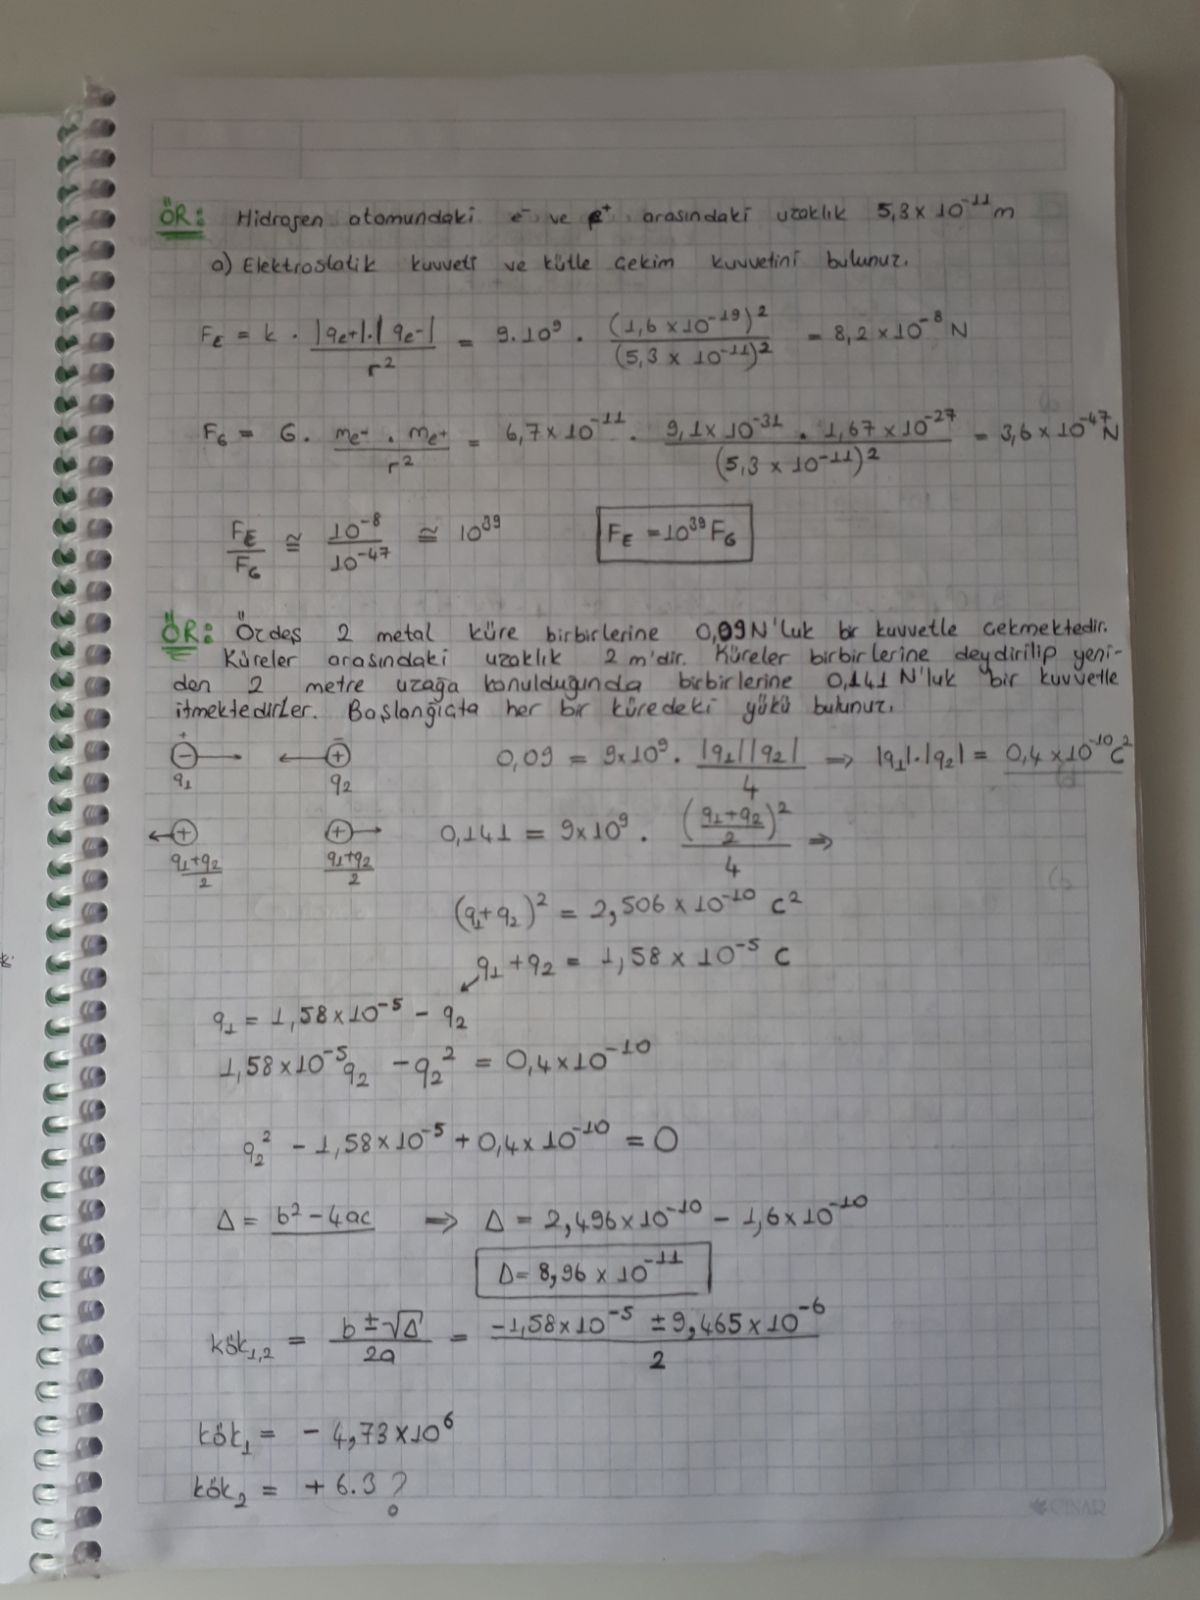 ÖR: Hidrojen atomundaki e⁻ ve e⁺ arasındaki uzaklık 5,3 x 10⁻¹¹ m
a) Elektrostatik kuvveti ve kütle çekim kuvvetini bulunuz.
F_E = k . |q_e+|.|q_e-| / r² = 9.10⁹ . (1,6 x 10⁻¹⁹)² / (5,3 x 10⁻¹¹)² = 8,2 x 10⁻⁸ N
F_G = G . m_e- . m_e+ / r² = 6,7 x 10⁻¹¹ . 9,1 x 10⁻³¹ . 1,67 x 10⁻²⁷ / (5,3 x 10⁻¹¹)² = 3,6 x 10⁻⁴⁷ N
F_E / F_G ≅ 10⁻⁸ / 10⁻⁴⁷ ≅ 10³⁹ F_E = 10³⁹ F_G
ÖR: Özdeş 2 metal küre birbirlerine 0,09 N'luk bir kuvvetle çekmektedir.
Küreler arasındaki uzaklık 2 m'dir. Küreler birbirlerine deydirilip yeni-
den 2 metre uzağa konulduğunda birbirlerine 0,141 N'luk bir kuvvetle
itmektedirler. Başlangıçta her bir küredeki yükü bulunuz.
+ - q₁ - + q₂ 0,09 = 9x10⁹ . |q₁||q₂| / 4 ⇒ |q₁|.|q₂| = 0,4 x 10⁻¹⁰ C²
+ (q₁+q₂)/2 + (q₁+q₂)/2 0,141 = 9x10⁹ . ((q₁+q₂)/2)² / 4 ⇒
(q₁+q₂)² = 2,506 x 10⁻¹⁰ C²
q₁ + q₂ = 1,58 x 10⁻⁵ C
q₁ = 1,58 x 10⁻⁵ - q₂
1,58 x 10⁻⁵q₂ - q₂² = 0,4 x 10⁻¹⁰
q₂² - 1,58 x 10⁻⁵ + 0,4 x 10⁻¹⁰ = 0
Δ = b² - 4ac ⇒ Δ = 2,496 x 10⁻¹⁰ - 1,6 x 10⁻¹⁰
Δ = 8,96 x 10⁻¹¹
kök₁,₂ = b ± √Δ / 2a = -1,58 x 10⁻⁵ ± 9,465 x 10⁻⁶ / 2
kök₁ = - 4,73 x 10⁶
kök₂ = + 6.3 ?
ÇINAR